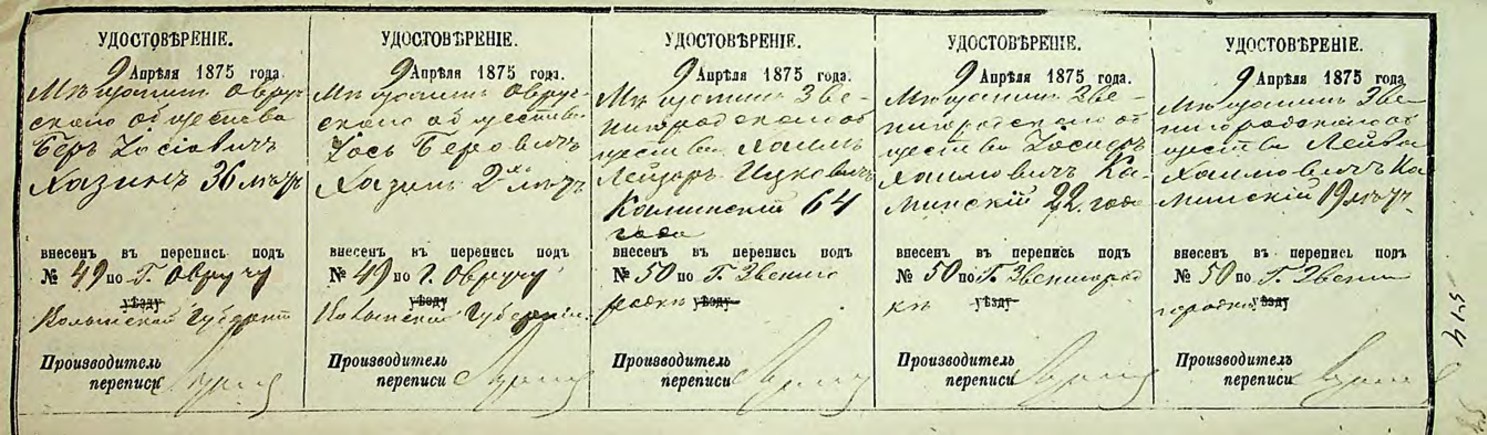 УДОСТОВѢРЕНІЕ.
9 Апрѣля 1875 года.
Мѣщанинъ Овруч-
скаго общества
Беръ Іосіовичъ
Хазинъ 36 лѣтъ
внесенъ въ перепись подъ
№ 49 по Г. Овручу
уѣзду
Волынской Губерніи
Производитель
переписи
УДОСТОВѢРЕНІЕ.
9 Апрѣля 1875 года.
Мѣщанинъ Овруч-
скаго общества
Іось Беровичъ
Хазинъ 2хъ лѣтъ
внесенъ въ перепись подъ
№ 49 по Г. Овручу
уѣзду
Волынской Губерніи.
Производитель
переписи
УДОСТОВѢРЕНІЕ.
9 Апрѣля 1875 года.
Мѣщанинъ Зве-
нигородскаго об
щества Хаимъ
Лейзоръ Ицковичъ
Каминскій 64
года
внесенъ въ перепись подъ
№ 50 по Г. Звениго
родкѣ уѣзду
Производитель
переписи
УДОСТОВѢРЕНІЕ.
9 Апрѣля 1875 года.
Мѣщанинъ Зве-
нигородскаго об
щества Іосифъ
Хаимовичъ Ка-
минскій 22 года
внесенъ въ перепись подъ
№ 50 по Г. Звенигород
кѣ уѣзду
Производитель
переписи
УДОСТОВѢРЕНІЕ.
9 Апрѣля 1875 года
Мѣщанинъ Зве-
нигородскаго об
щества Лейба
Хаимовичъ Ка
минскій 19 лѣтъ
внесенъ въ перепись подъ
№ 50 по Г. Звени
городкѣ уѣзду
Производитель
переписи